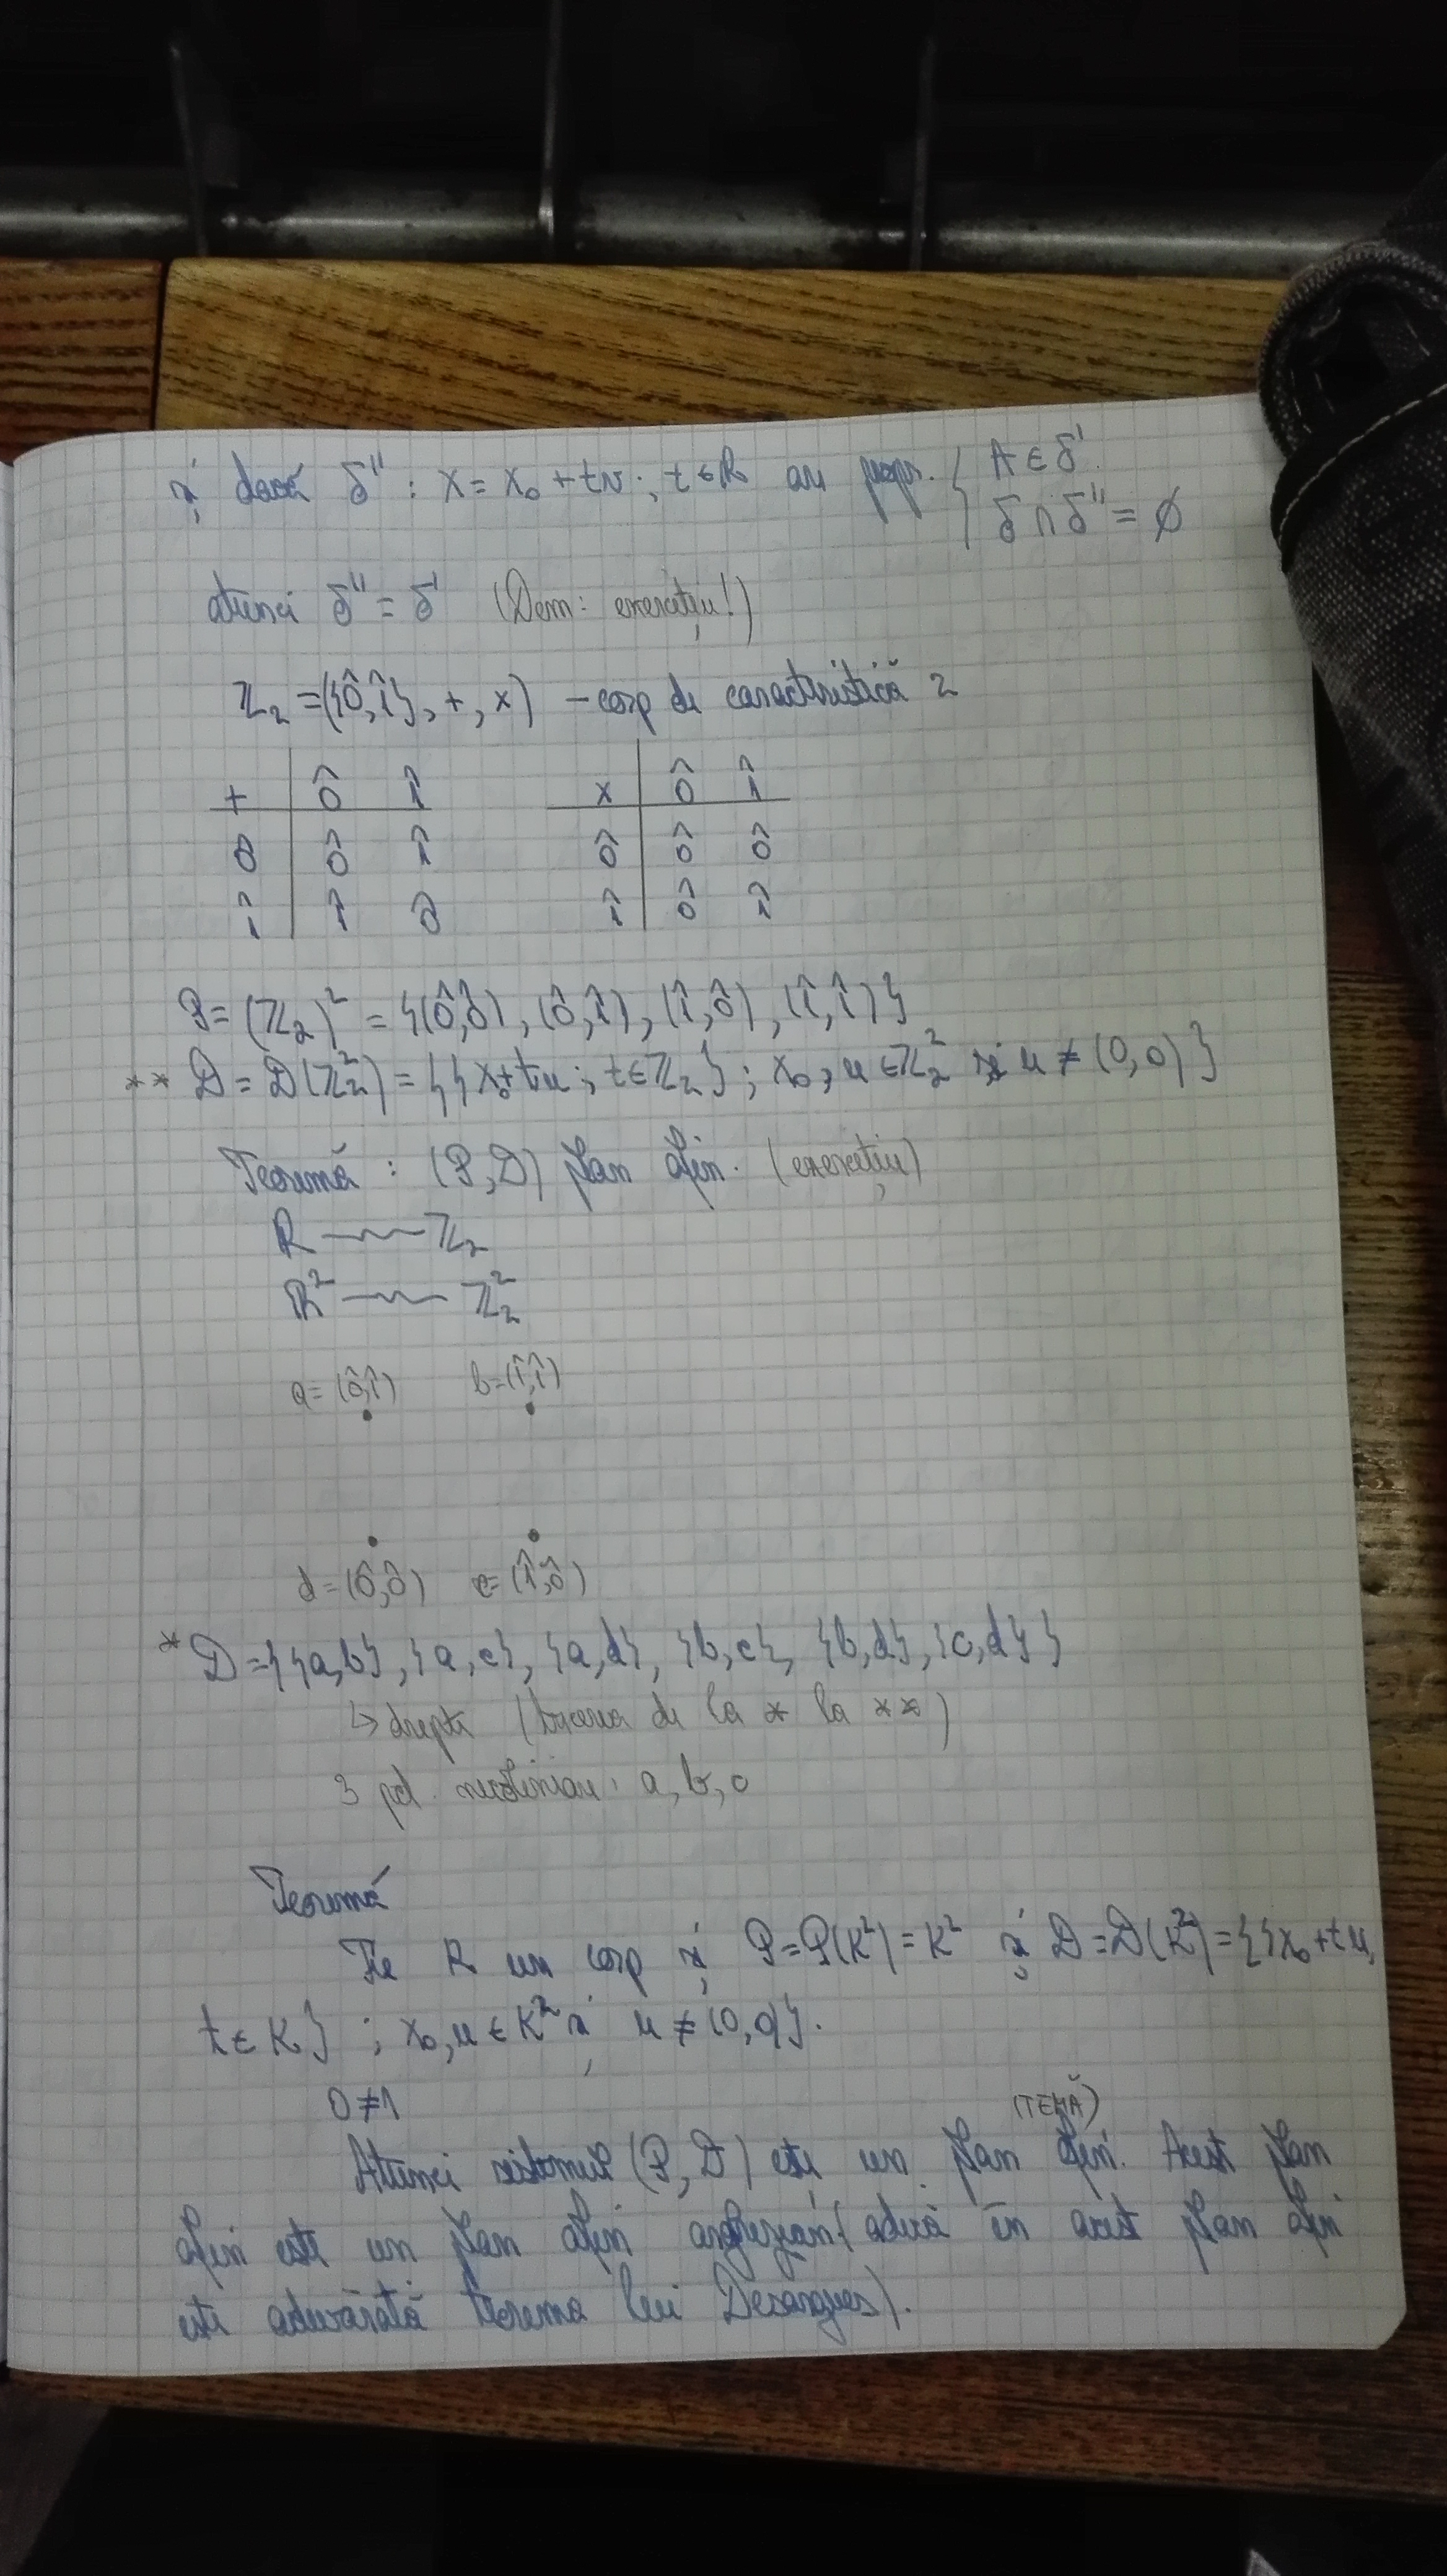 și dacă δ'' : x = x₀ + tv ; t ∈ ℝ au propr. { A ∈ δ'
{ δ ∩ δ'' = ∅
atunci δ'' = δ' (Dem: exercițiu!)
ℤ₂ = ({0̂, 1̂}, +, ×) – corp de caracteristică 2
+ | 0̂ 1̂    × | 0̂ 1̂
0̂ | 0̂ 1̂    0̂ | 0̂ 0̂
1̂ | 1̂ 0̂    1̂ | 0̂ 1̂
P = (ℤ₂)² = {(0̂,0̂), (0̂,1̂), (1̂,0̂), (1̂,1̂)}
** D = D(ℤ₂²) = {{x₀ + tu ; t ∈ ℤ₂} ; x₀, u ∈ ℤ₂² și u ≠ (0,0)}
Teoremă : (P, D) plan afin. (exercițiu)
ℝ ~~~ ℤ₂
ℝ² ~~~ ℤ₂²
a = (0̂,1̂) b = (1̂,1̂)
d = (0̂,0̂) c = (1̂,0̂)
* D = {{a,b}, {a,c}, {a,d}, {b,c}, {b,d}, {c,d}}
↳ drepte (trecerea de la * la **)
3 pct. necoliniare: a, b, c
Teoremă
Fie K un corp și P = P(K²) = K² și D = D(K²) = {{x₀ + tu,
t ∈ K} ; x₀, u ∈ K² și u ≠ (0,0)}.
0 ≠ 1
(TEMĂ)
Atunci sistemul (P, D) este un plan afin. Acest plan
afin este un plan afin arghezian (adică în acest plan afin
este adevărată teorema lui Desargues).